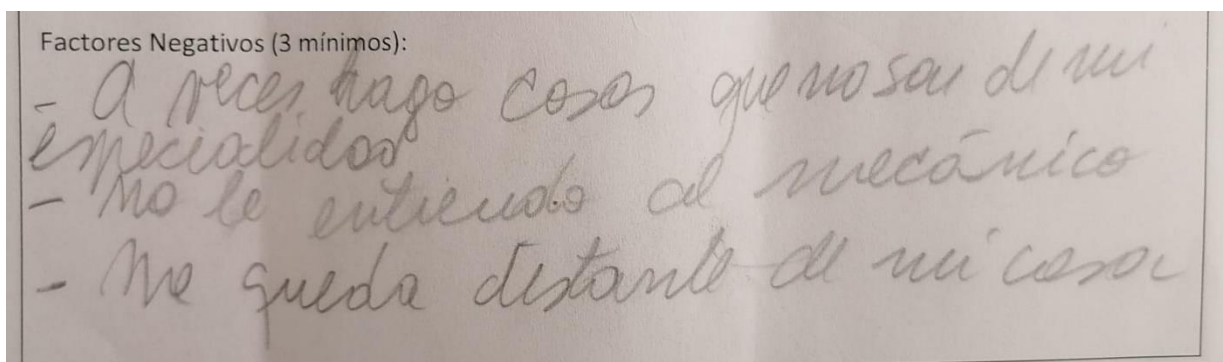 Factores Negativos (3 mínimos):
- A veces hago cosas que no son de mi
especialidad
- No le entiendo al mecánico
- Me queda distante de mi casa